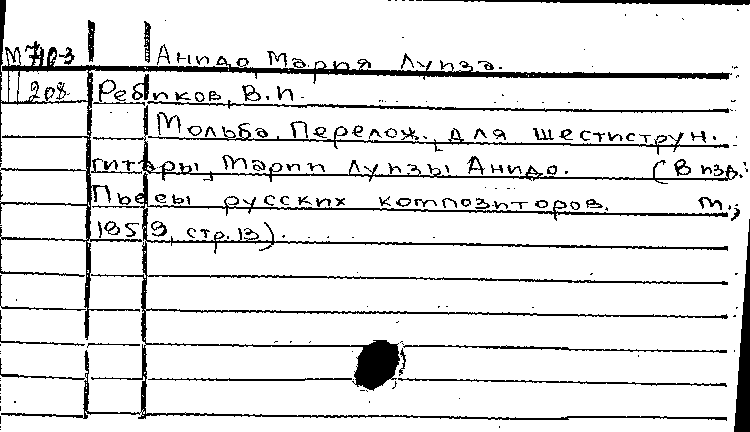 М 710-3 Анидо, Мария Луиза.
11208 Ребиков, В.И.
Мольба. Перелож. для шестиструн.
гитары Марии Луизы Анидо. (В изд.:
Пьесы русских композиторов. М.,
1959, стр. 13).